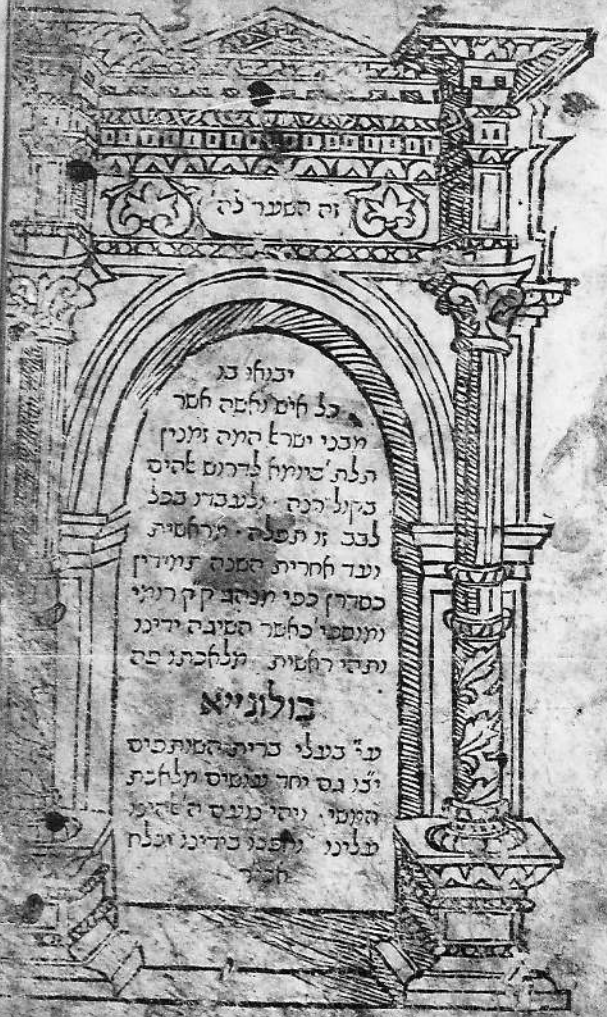 זה השער לה'
יבואו בו
כל איש ואשה אשר
מבני ישרא' המה זמנין
תלת ביומא לדרוש אהים
בקול רנה · ולעבדו בכל
לבב זו תפלה · מראשית
ועד אחרית השנה תמידין
כסדרן כפי מנהג ק"ק רומי
כאשר השיבה ידינו
ותהי ראשית מלאכתו פה
בולונייא
ע"י בעלי ברית השותפים
יחד עושים מלאכת
המשי · ויהי נועם ה' אהינו
עלינו בידינו יצלח